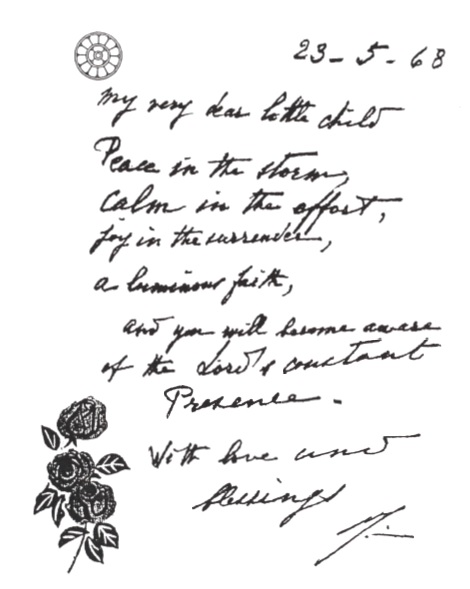 23-5-68
my very dear little child
Peace in the storm,
calm in the effort,
joy in the surrender,
a luminous faith,
and you will become aware
of the Lord's constant
Presence.
With love and
blessings